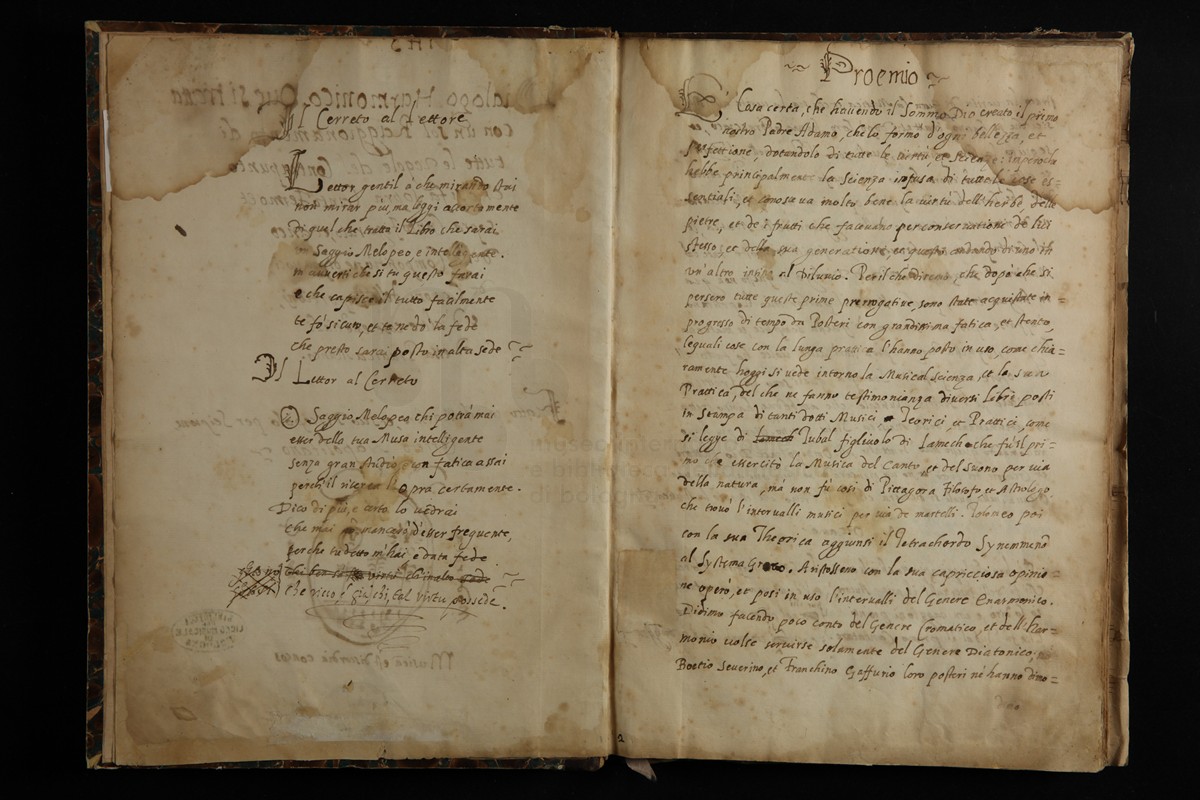 Il Cerreto al Lettore
Lettor gentil o che mirando stai
non mirar più, ma leggi accortamente
di quel che tratta il Libro che sarai
Saggio Melopeo e intelligente.
m'avverti che si tu questo farai
e che capisce il tutto facilmente
te fò sicuro, et te ne dò la fede
che presto sarai posto in alta sede
Il Lettor al Cerreto
O Saggio Melopeo, chi potrà mai
esser della tua Musa intelligente
senza gran studio, e con fatica assai
perch'il ricerca l'opra certamente.
Dico di più, e certo lo vedrai
che mai d'esser frequente,
perche tu detto m'hai e data fede
che ricco, è quel chi, tal virtù possede.
Proemio
È Cosa certa, che havendo il Sommo Dio creato il primo
nostro Padre Adamo, che lo formo d'ogni bellezza, et
perfettione, dotandolo di tutte le virtù et scienze: imperoche
hebbe principalmente la scienza infusa di tutte le cose es-
sentiali, et conosceva molto bene la virtù dell'herbe delle
pietre, et de i frutti che facevano per conservatione de lui
stesso, et della sua generatione, et questo andando di uno in
un'altro insino al Diluvio. Per il che dirrò, che dopò che si
persero tutte queste prime prerrogative, sono state acquistate in=
progresso di tempo da Posteri con grandissima fatica, et stento,
lequali cose con la lunga prattica l'hanno posto in uso, come chia=
ramente heggi si vede intorno la Musical scienza, et la sua
Prattica, del che ne fanno testimonianza diversi libri posti
in stampa di tanti dotti Musici Teorici et Prattici, come
si legge di Iamech Iubal figliuolo di Lamech che fù il pri=
mo che essercitò la Musica del Canto, et del Suono per via
della natura, mà non fù così di Pittagora Filosofo, et Astrologo
che trovò l'intervalli musici per via de martelli. Tolomeo poi
con la sua Theorica aggiunsi il Tetrachordo Synemmenò
al Systema Greco. Aristosseno con la sua capricciosa opinio=
ne operò, et posi in uso l'intervalli del Genere Enarmonico.
Didimo facendo poco conto del Genere Cromatico, et dell'Enar=
monio volse servirse solamente del Genere Diatonico,
Boetio Severino, et Franchino Gaffurio loro posteri ne hanno dimo=
2